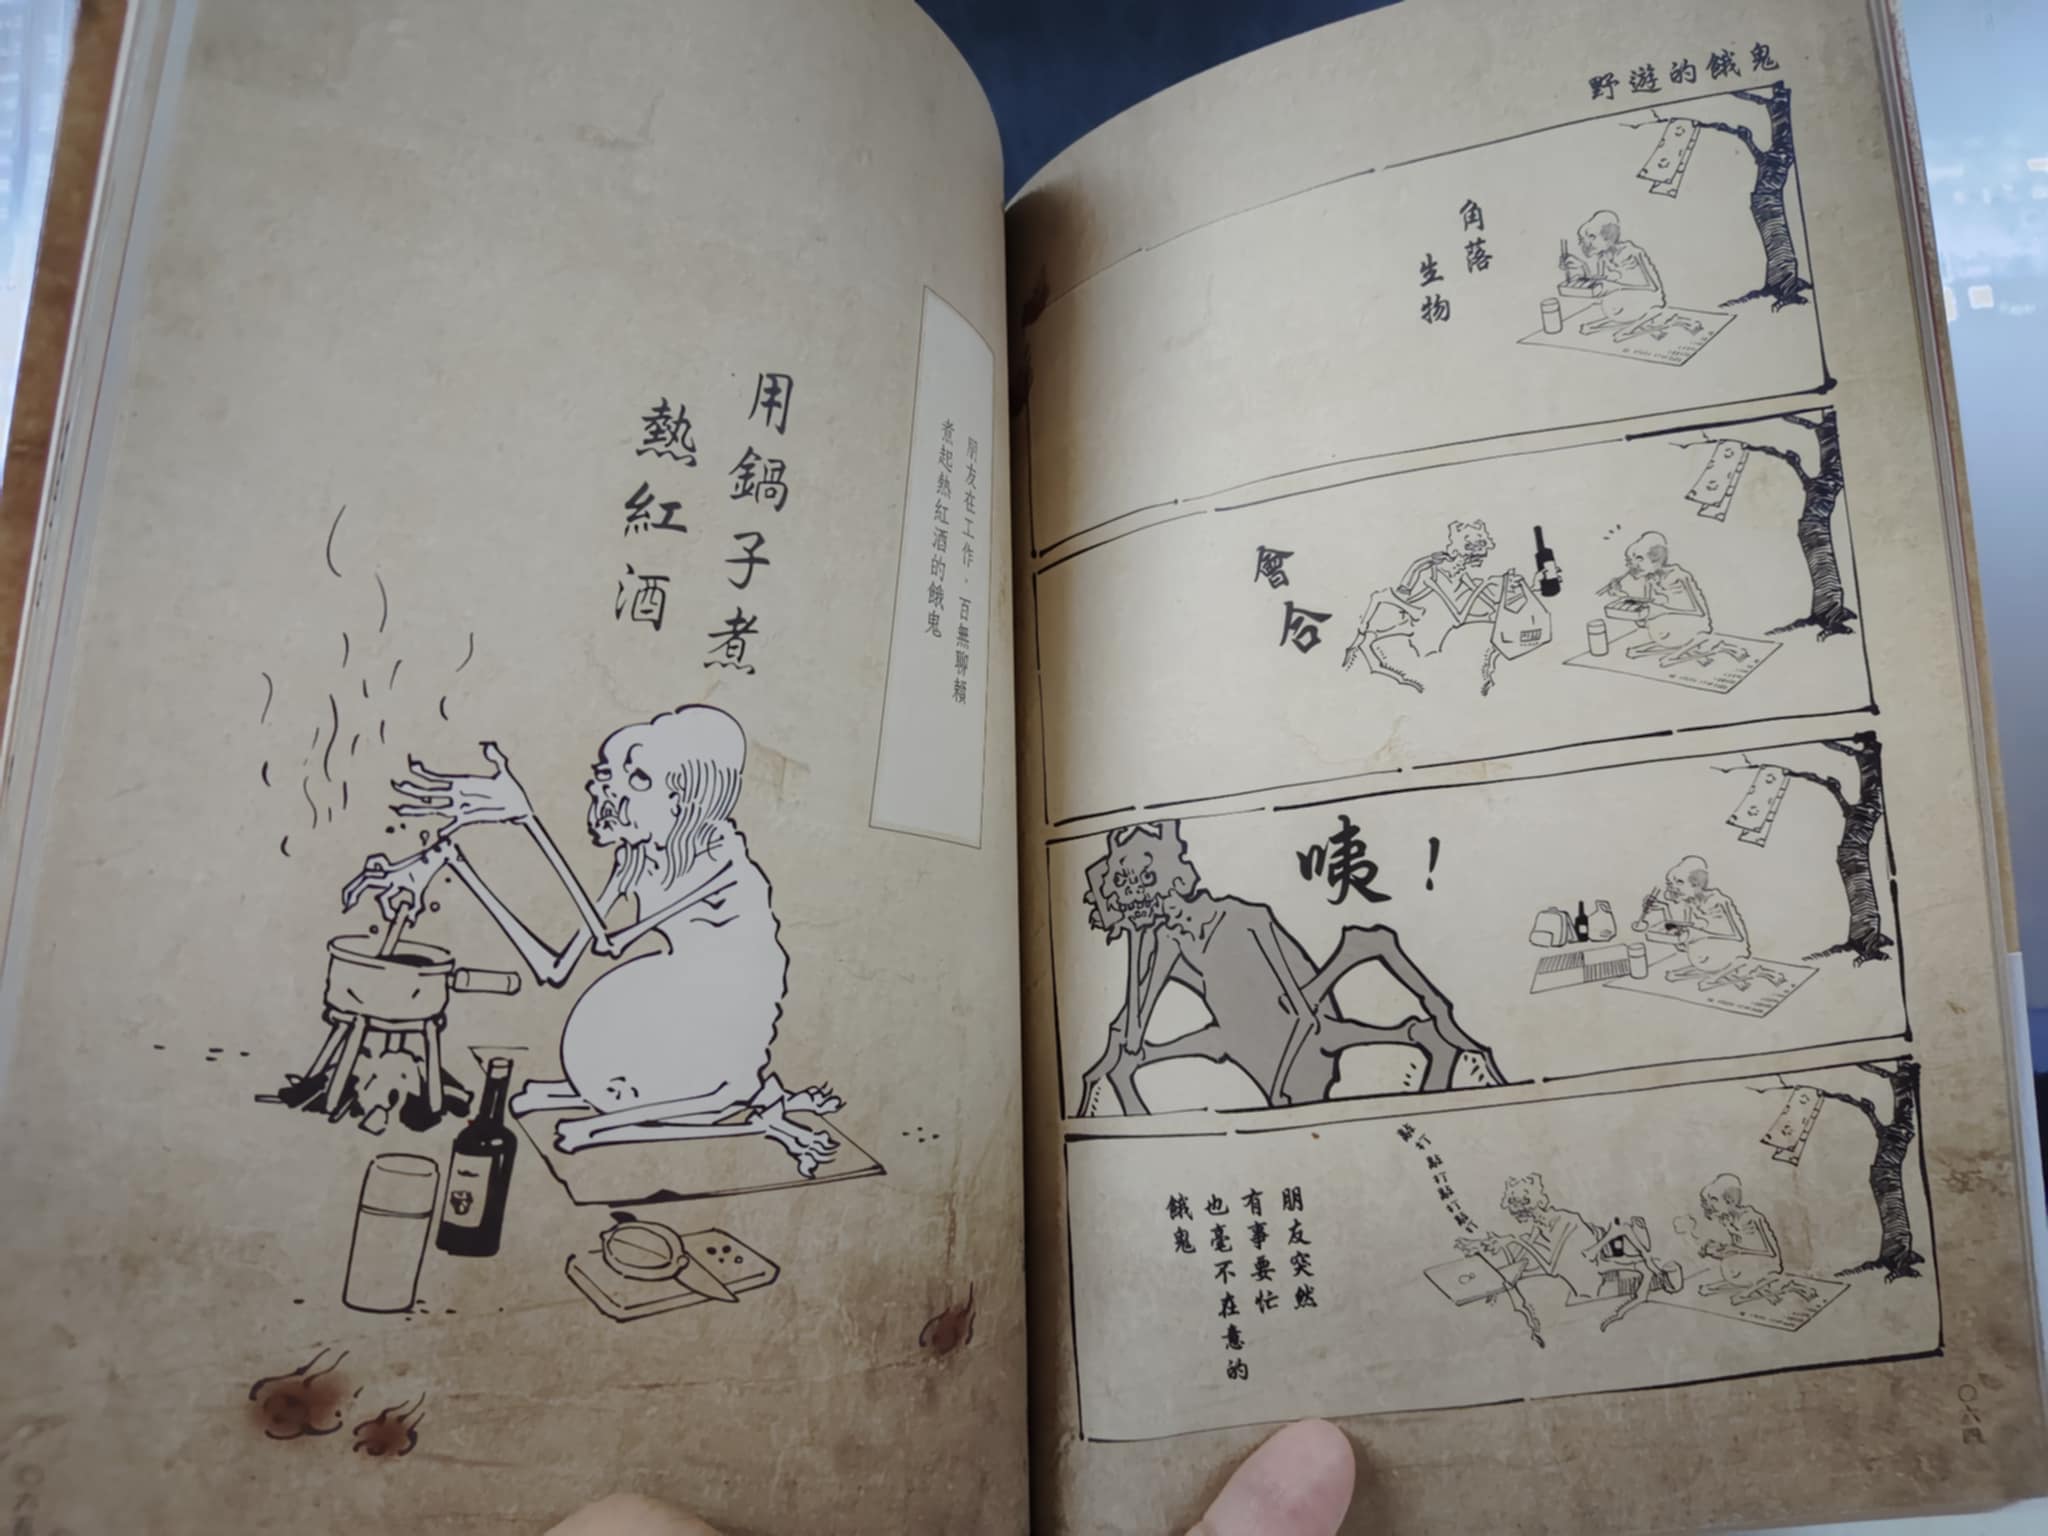 野遊的餓鬼
角落
生物
會合
咦！
敲打敲打敲打敲打
朋友突然
有事要忙
也毫不在意的
餓鬼
〇六四
朋友在工作，百無聊賴
煮起熱紅酒的餓鬼
用鍋子煮
熱紅酒